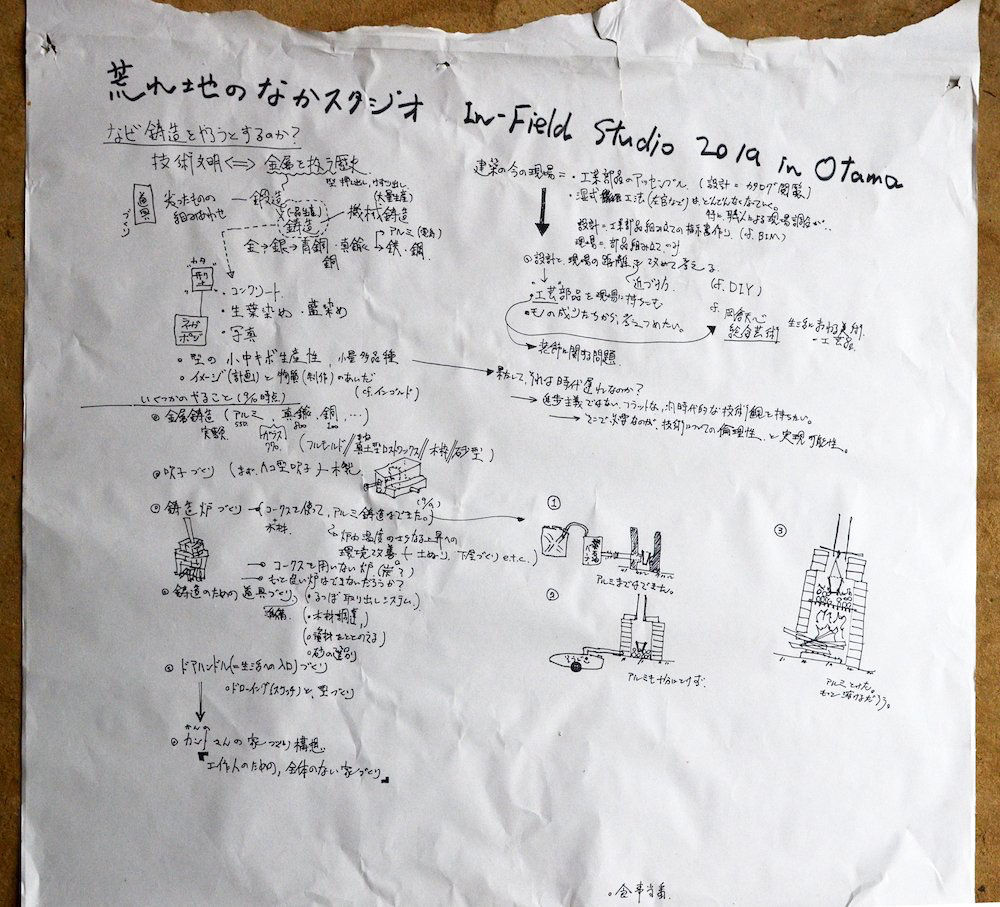 荒れ地のなかスタジオ In-Field Studio 2019 in Otama
なぜ鋳造をやろうとするのか？
技術文明 ⟺ 金属を扱う歴史
型押し出し、
(大量生産)
道具づくり
尖ったものの
組みあわせ
鍛造
(一品生産)
鋳造
機械鋳造
アルミ(電気)
金→銀→青銅・真鍮→鉄・鋼
銅
"カタ"
型
・コンクリート
・生葉染め・藍染め
ネガポジ
・写真
○型の小中キボ生産性、小量多品種
○イメージ(計画)と物質(制作)のあいだ
(cf.インゴルド)
建築の今の現場＝・工業部品のアッセンブル (設計＝カタログ閲覧)
・湿式工法(左官など)はどんどんなくなていく。
特に、職人による現場調合が‥
設計＝工業部品組み立ての指示書作り (cf.BIM)
現場＝部品組み立てのみ
○設計と、現場の距離を改めて考える
(近づけ) (cf.DIY)
・工芸部品を現場に持ちこむ
・モノの成り立ちから、考えつめたい。
cf.岡倉天心
総合芸術
生活における美術
－工芸品
装飾に関する問題
果たして、それは時代遅れなのか？
進歩主義ではない、フラットな、同時代的な技術観を持ちたい。
そこで必要なのが、技術についての倫理性、と実現可能性。
いくつかのやること(9/10時点)
○金属鋳造(アルミ、真鍮、銅、…)
実験
ガラス
(フルモールド//真土型ロストワックス//木枠//砂型)
○吹子づくり(まず、ハコ型吹子)－木製
○鋳造炉づくり→(コークスを使って、アルミ鋳造はできた。)
木材
炉内温度のさらなる上昇への
環境改善←土ぬり、下屋づくりe.t.c.)
→○コークスを用いない炉(炭？)
→○もっと良い炉はできないだろうか？
○鋳造のための道具づくり
準備
(・るつぼ取り出しシステム)
(・木材調達)
(○資材をととのえる)
○砂の選別
○ドアハンドル(＝生活への入口)づくり
○ドローイング(スケッチ)と、型づくり
かんの
○カンノさんの家づくり構想
『工作人のための、全体のない家づくり』
①
アルミまではできました。
②
アルミも十分にとけず。
③
アルミとけた。
もっと溶けるだろう。
○食事当番